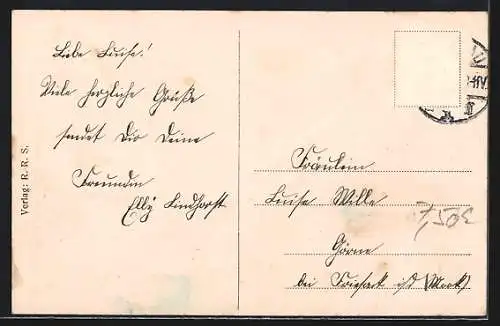 Liebe Luise!
Viele herzliche Grüße
sendet Dir Deine
Freundin
Elly Lindhorst
Verlag: R. R. S.
Fräulein
Luise Wille
Görne
bei Friesack i/d (Mark)